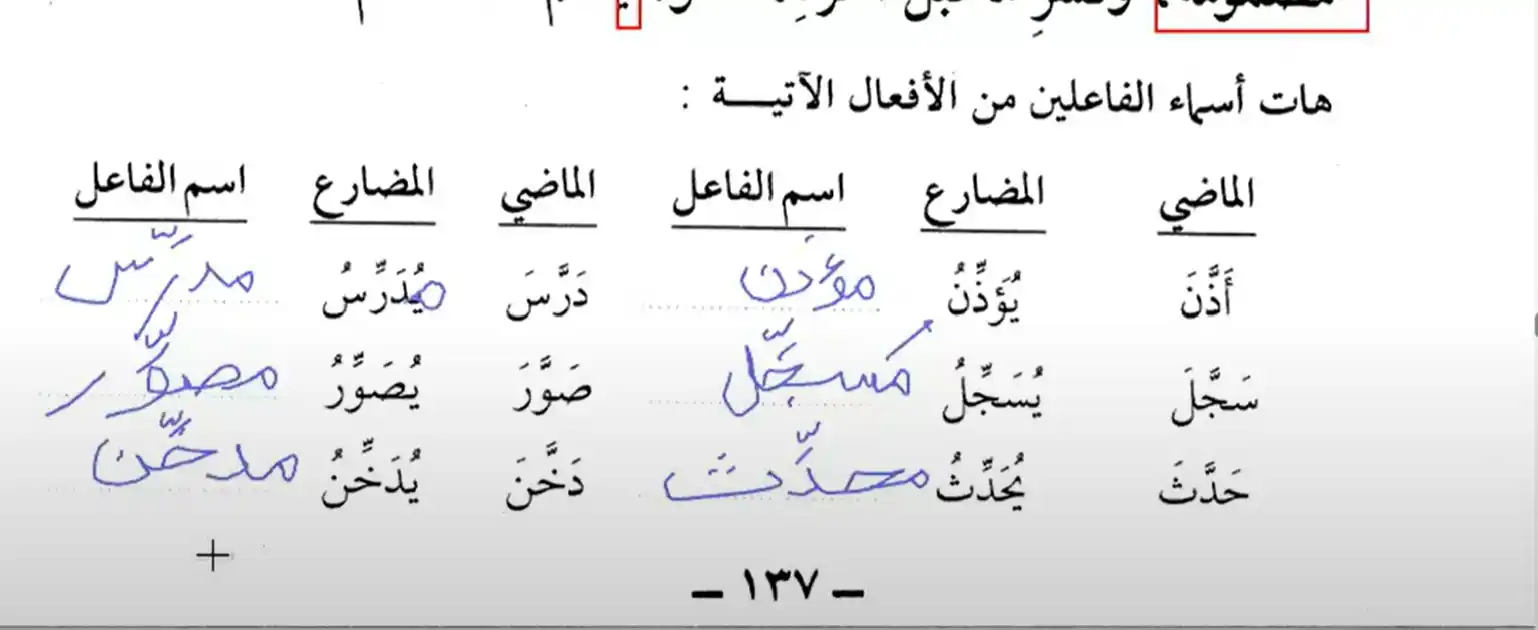 هات أسماء الفاعلين من الأفعال الآتيــــة :
الماضي المضارع اسم الفاعل الماضي المضارع اسم الفاعل
أَذَّنَ يُؤَذِّنُ مؤذن دَرَّسَ يُدَرِّسُ مدرّس
سَجَّلَ يُسَجِّلُ مُسجّل صَوَّرَ يُصَوِّرُ مصوّر
حَدَّثَ يُحَدِّثُ محدّث دَخَّنَ يُدَخِّنُ مدخّن
– ١٣٧ –